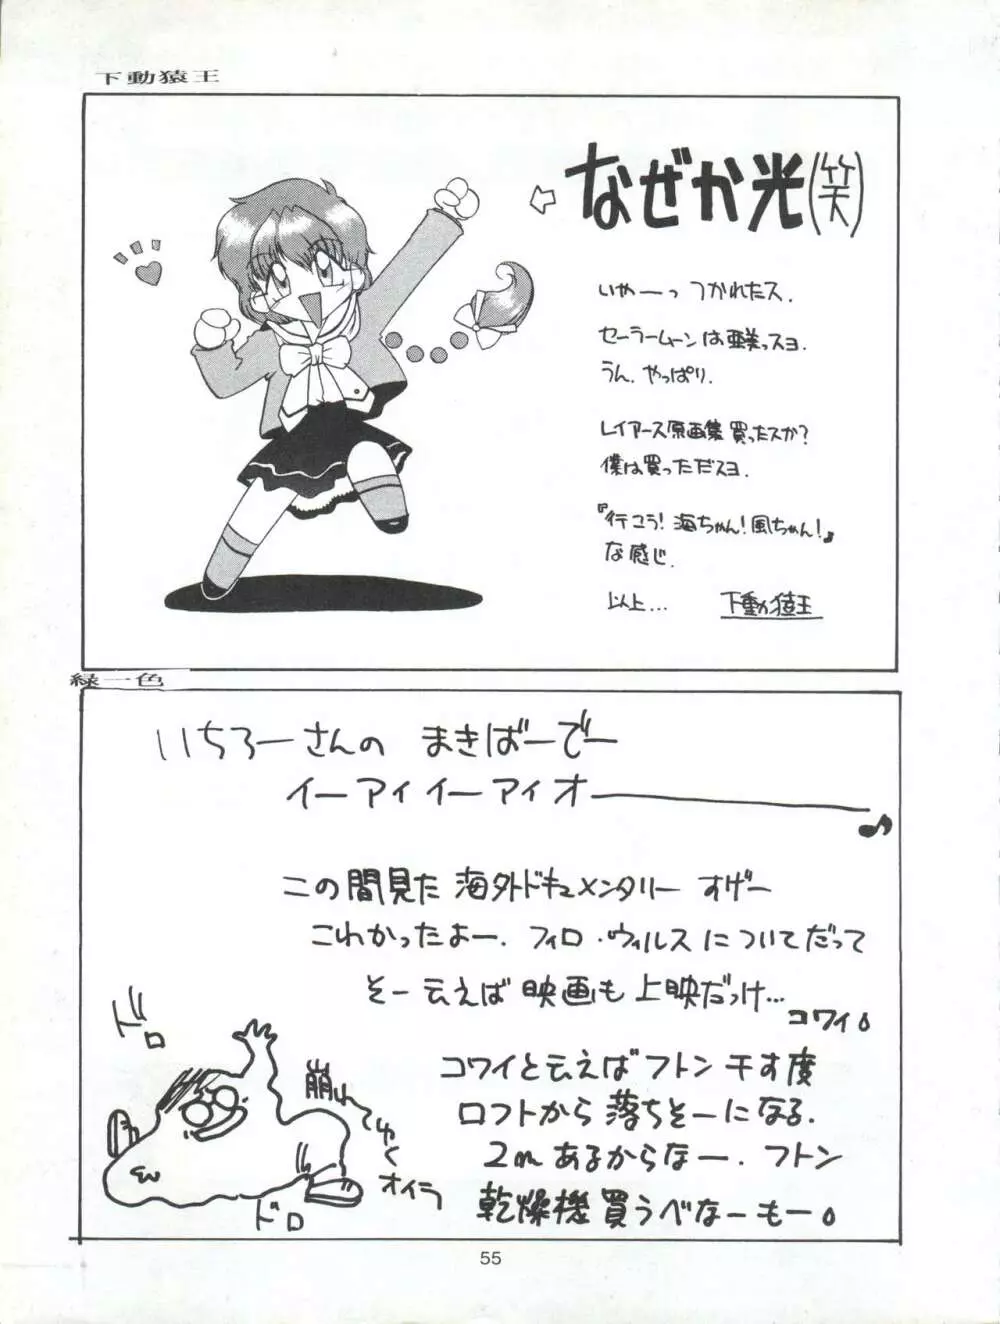 下動猿王
なぜか光(笑)
いやーっ つかれたス.
セーラームーンは亜美っスヨ.
うん.やっぱり.
レイアース原画集買ったスか?
僕は買っただスヨ.
『行こう! 海ちゃん!風ちゃん!』♪
な感じ.
以上... 下動猿王
緑一色
いちろーさんの まきばーでー
イーアイイーアイオー♪
この間見た 海外ドキュメンタリー すげー
こわかったよー. フィロ・ウィルスについてだって
そー云えば 映画も 上映だっけ...
コワイ。
コワイと云えば フトン 干す度
ロフトから 落ちそーになる.
2mあるからなー. フトン
乾燥機買うべなーもー。
ドロ
崩れてゆく
オイラ
ドロ
55